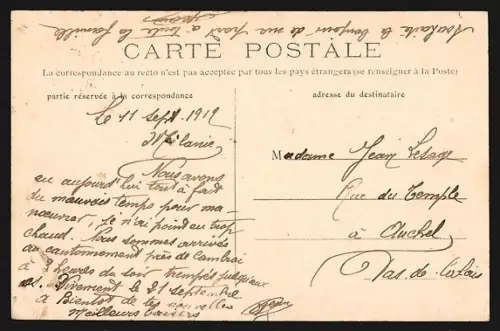 Souhaite le bonjour de ma part à toute la famille
CARTE POSTALE
La correspondance au recto n'est pas acceptée par tous les pays étrangers (se renseigner à la Poste)
partie réservée à la correspondance
adresse du destinataire
le 11 Sept 1912
Mélanie
Nous avons
eu aujourd'hui tout à fait
du mauvais temps pour ma-
nœuvrer, je n'ai point eu trop
chaud. Nous sommes arrivés
au cantonnement près de Cambrai
à 2 heures du soir trempés jusqu'aux
os. Vivement le 21 septembre
à Bientôt de tes nouvelles
Meilleurs baisers
Jean
Madame Jean Lesage
Rue du Temple
à Auchel
Pas-de-Calais